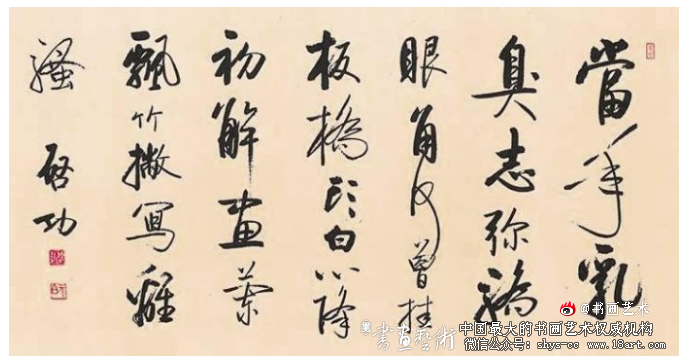 當年乳
臭志弥驕
眼角何曾挂
板橋頭白心降
初解畫蘭
飄竹撇寫離
騷
啓功
@书画艺术
書画藝術
中国最大的书画艺术权威机构
微信公众号：shys-cc www.18art.com